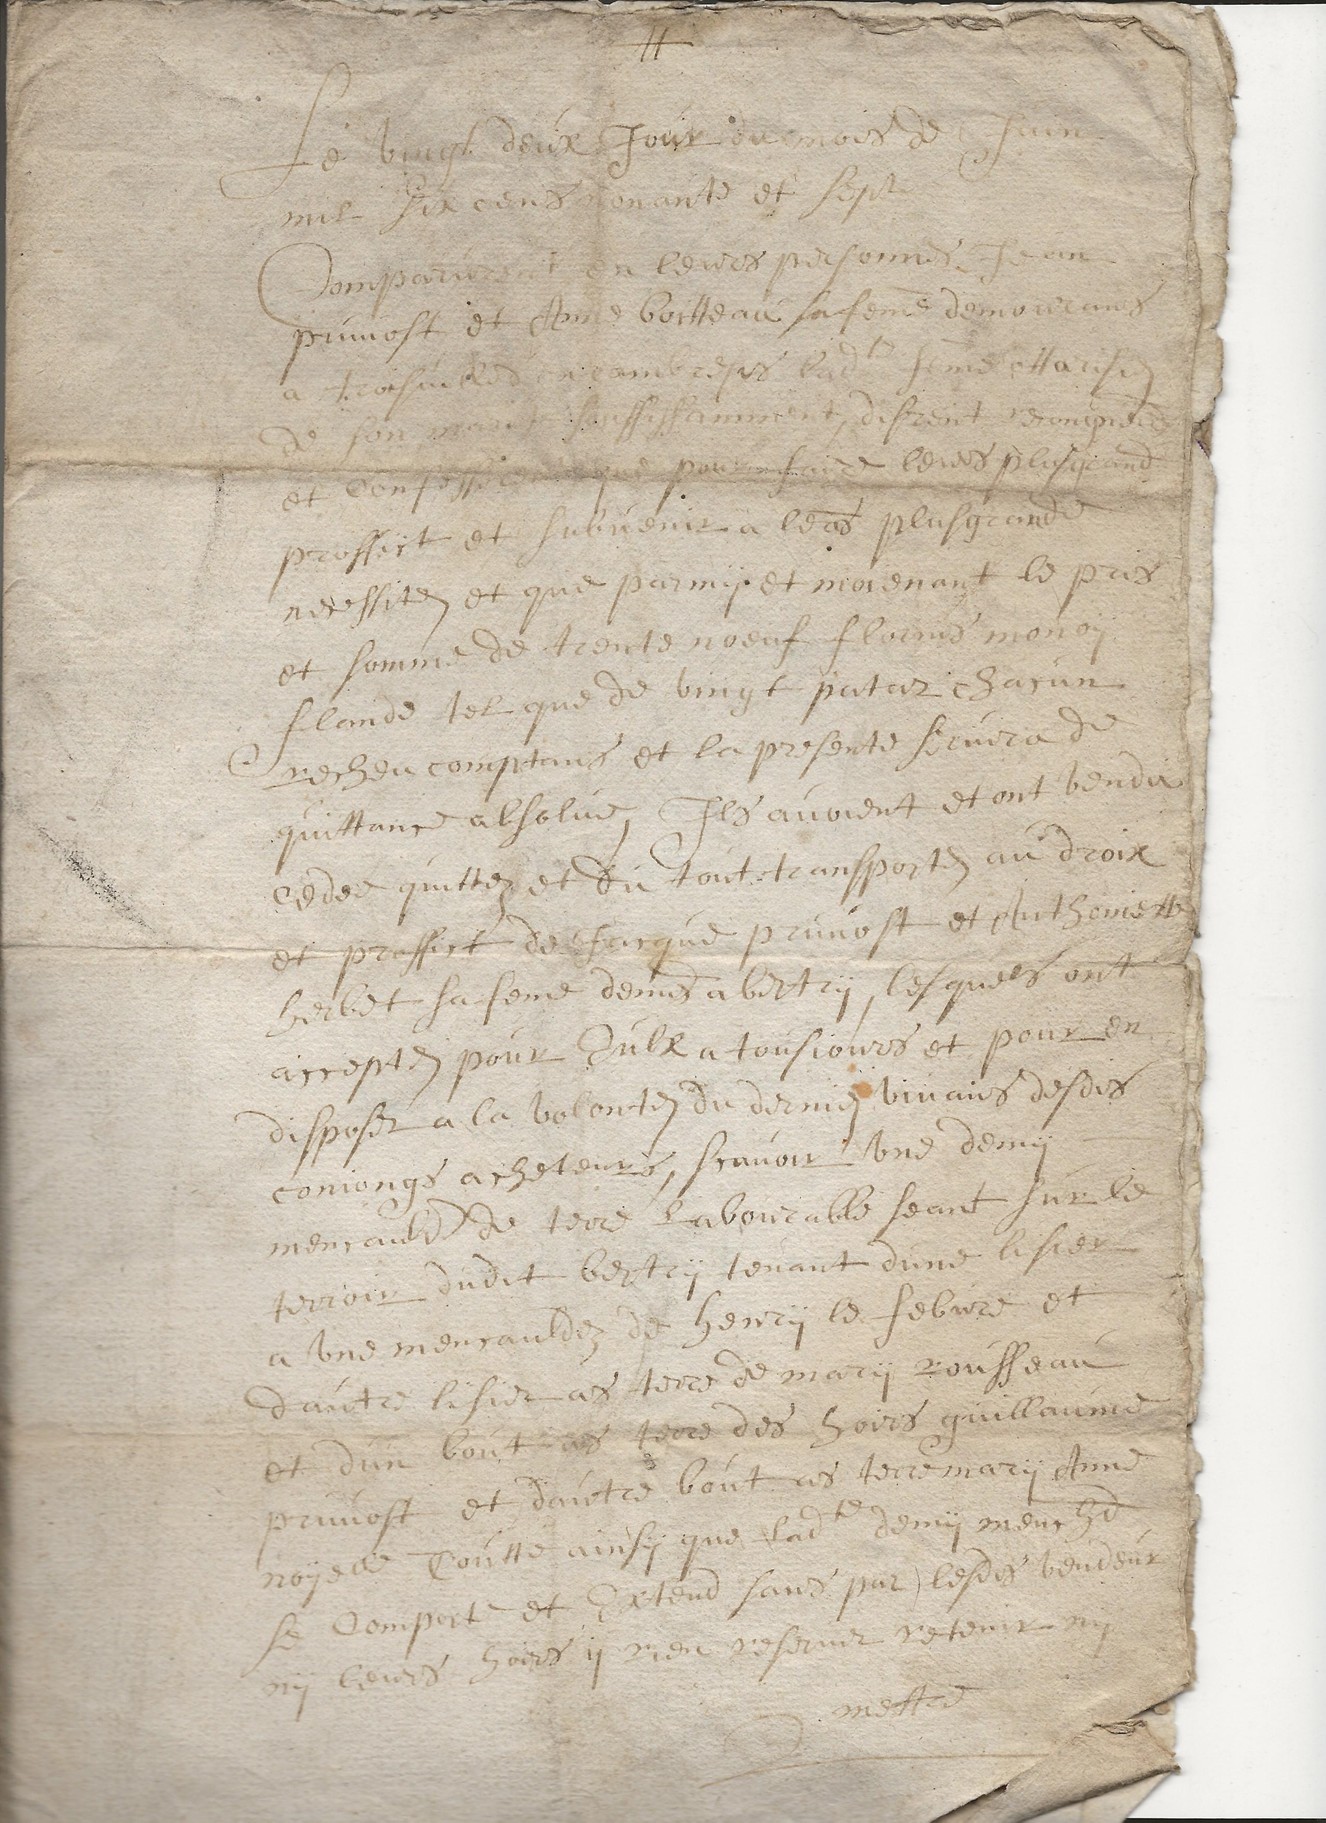 Le vingt deux Jour du mois de Juin
mil six cens nonante et sept
Comparurent en leurs personnes Jean
pruuost et Anne boitteau sa feme demourans
a troisuilles en cambresis lad.te feme
de son marit souffissamment, disrent
et Confesserent que pour faire leurs plusgrand
proffict et subuenir a leurs plusgrande
necessitez et que parmij et moienant le pris
et somme de trente noeuf florins monoij
flandé tel que de vingt patar chacun
recheu comptans et la presente seruira de
quittance absolue, Ils auoient et ont vendu
cedee quittez et du tout transportez au droix
et proffict de Jacque pruuost et Anthoinette
herbet sa feme demt a bertrij, lesquels ont
acceptez pour Eulx a tousiours et pour en
disposer a la volontez du dernier viuans desdis
coniongs acheteurs, scauoir vne demij
mencauldee de terre Labourable seant sur le
terroir dudit bertrij tenant dune lisier
a vne mencauldez de henrij le febure et
dautre lisier as terre de marij rousseau
et dun bout as terre des hoirs guillaume
pruuost et dautre bout as terre marij Anne
noijelle Toutte ainsij que lad.te demij menc.hd
se Comporte et Extend sans par lesdis vendeur
nij leurs hoirs ij rien reseruer retenir nij
mettre